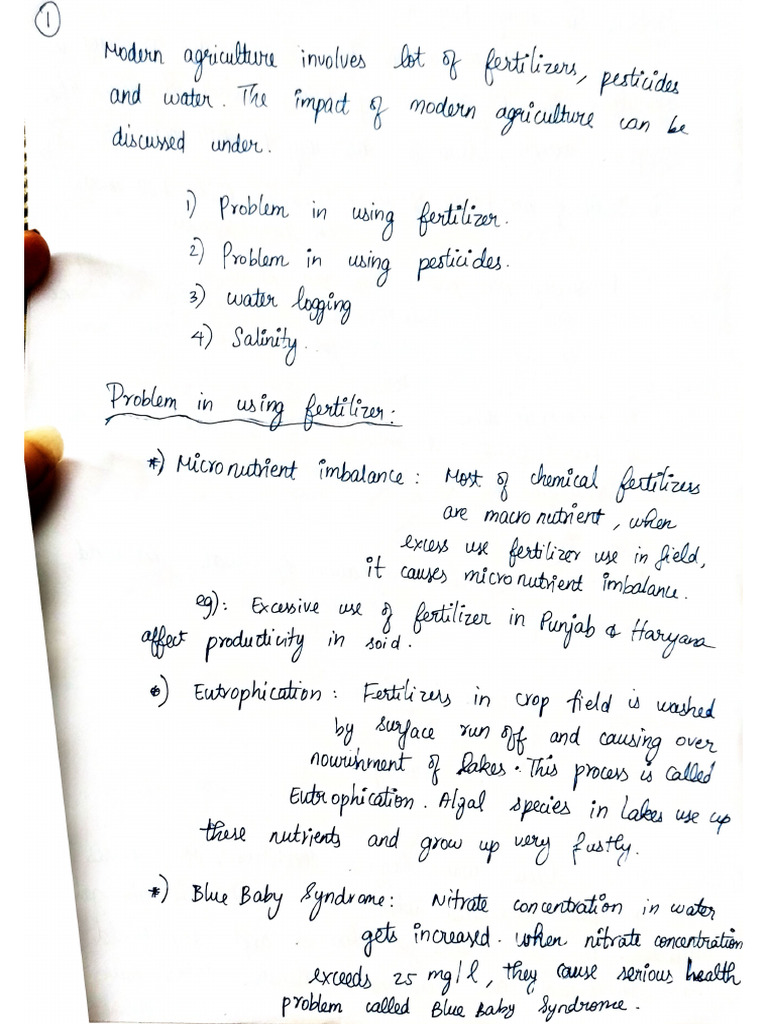 1
Modern agriculture involves lot of fertilizers, pesticides
and water. The impact of modern agriculture can be
discussed under.
1) Problem in using fertilizer.
2) Problem in using pesticides.
3) water logging
4) Salinity.
Problem in using fertilizer:
*) Micronutrient imbalance: Most of chemical fertilizers
are macronutrient, when
excess use fertilizer use in field,
it causes micronutrient imbalance.
eg): Excessive use of fertilizer in Punjab & Haryana
affect productivity in soid.
*) Eutrophication: Fertilizers in crop field is washed
by surface run off and causing over
nourishment of lakes. This process is called
Eutrophication. Algal species in lakes use up
these nutrients and grow up very fastly.
*) Blue Baby Syndrome: Nitrate concentration in water
gets increased. when nitrate concentration
exceeds 25 mg/l, they cause serious health
problem called Blue Baby Syndrome.